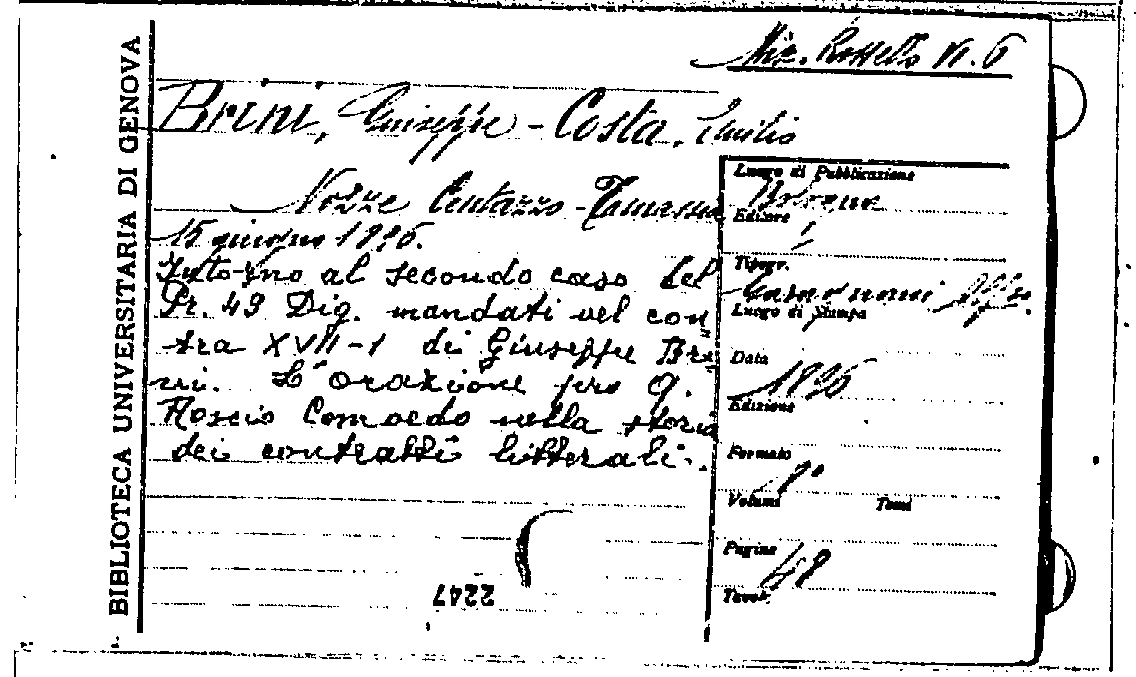 BIBLIOTECA UNIVERSITARIA DI GENOVA
Brini, Giuseppe - Costa, Emilio
Nozze Centazzo - Tamassia
15 giugno 1896.
Intorno al secondo caso del
Pr. 49 Dig. mandati vel con
tra XVII-1 di Giuseppe Bri
ni. L'orazione pro Q.
Roscio Comoedo nella storia
dei contratti litterali.
2247
Luogo di Pubblicazione
Bologna
Editore
Tipogr.
Luogo di Stampa
Data
1896
Edizione
Formato
8°
Volumi Tomi
Pagine
48
Tavole